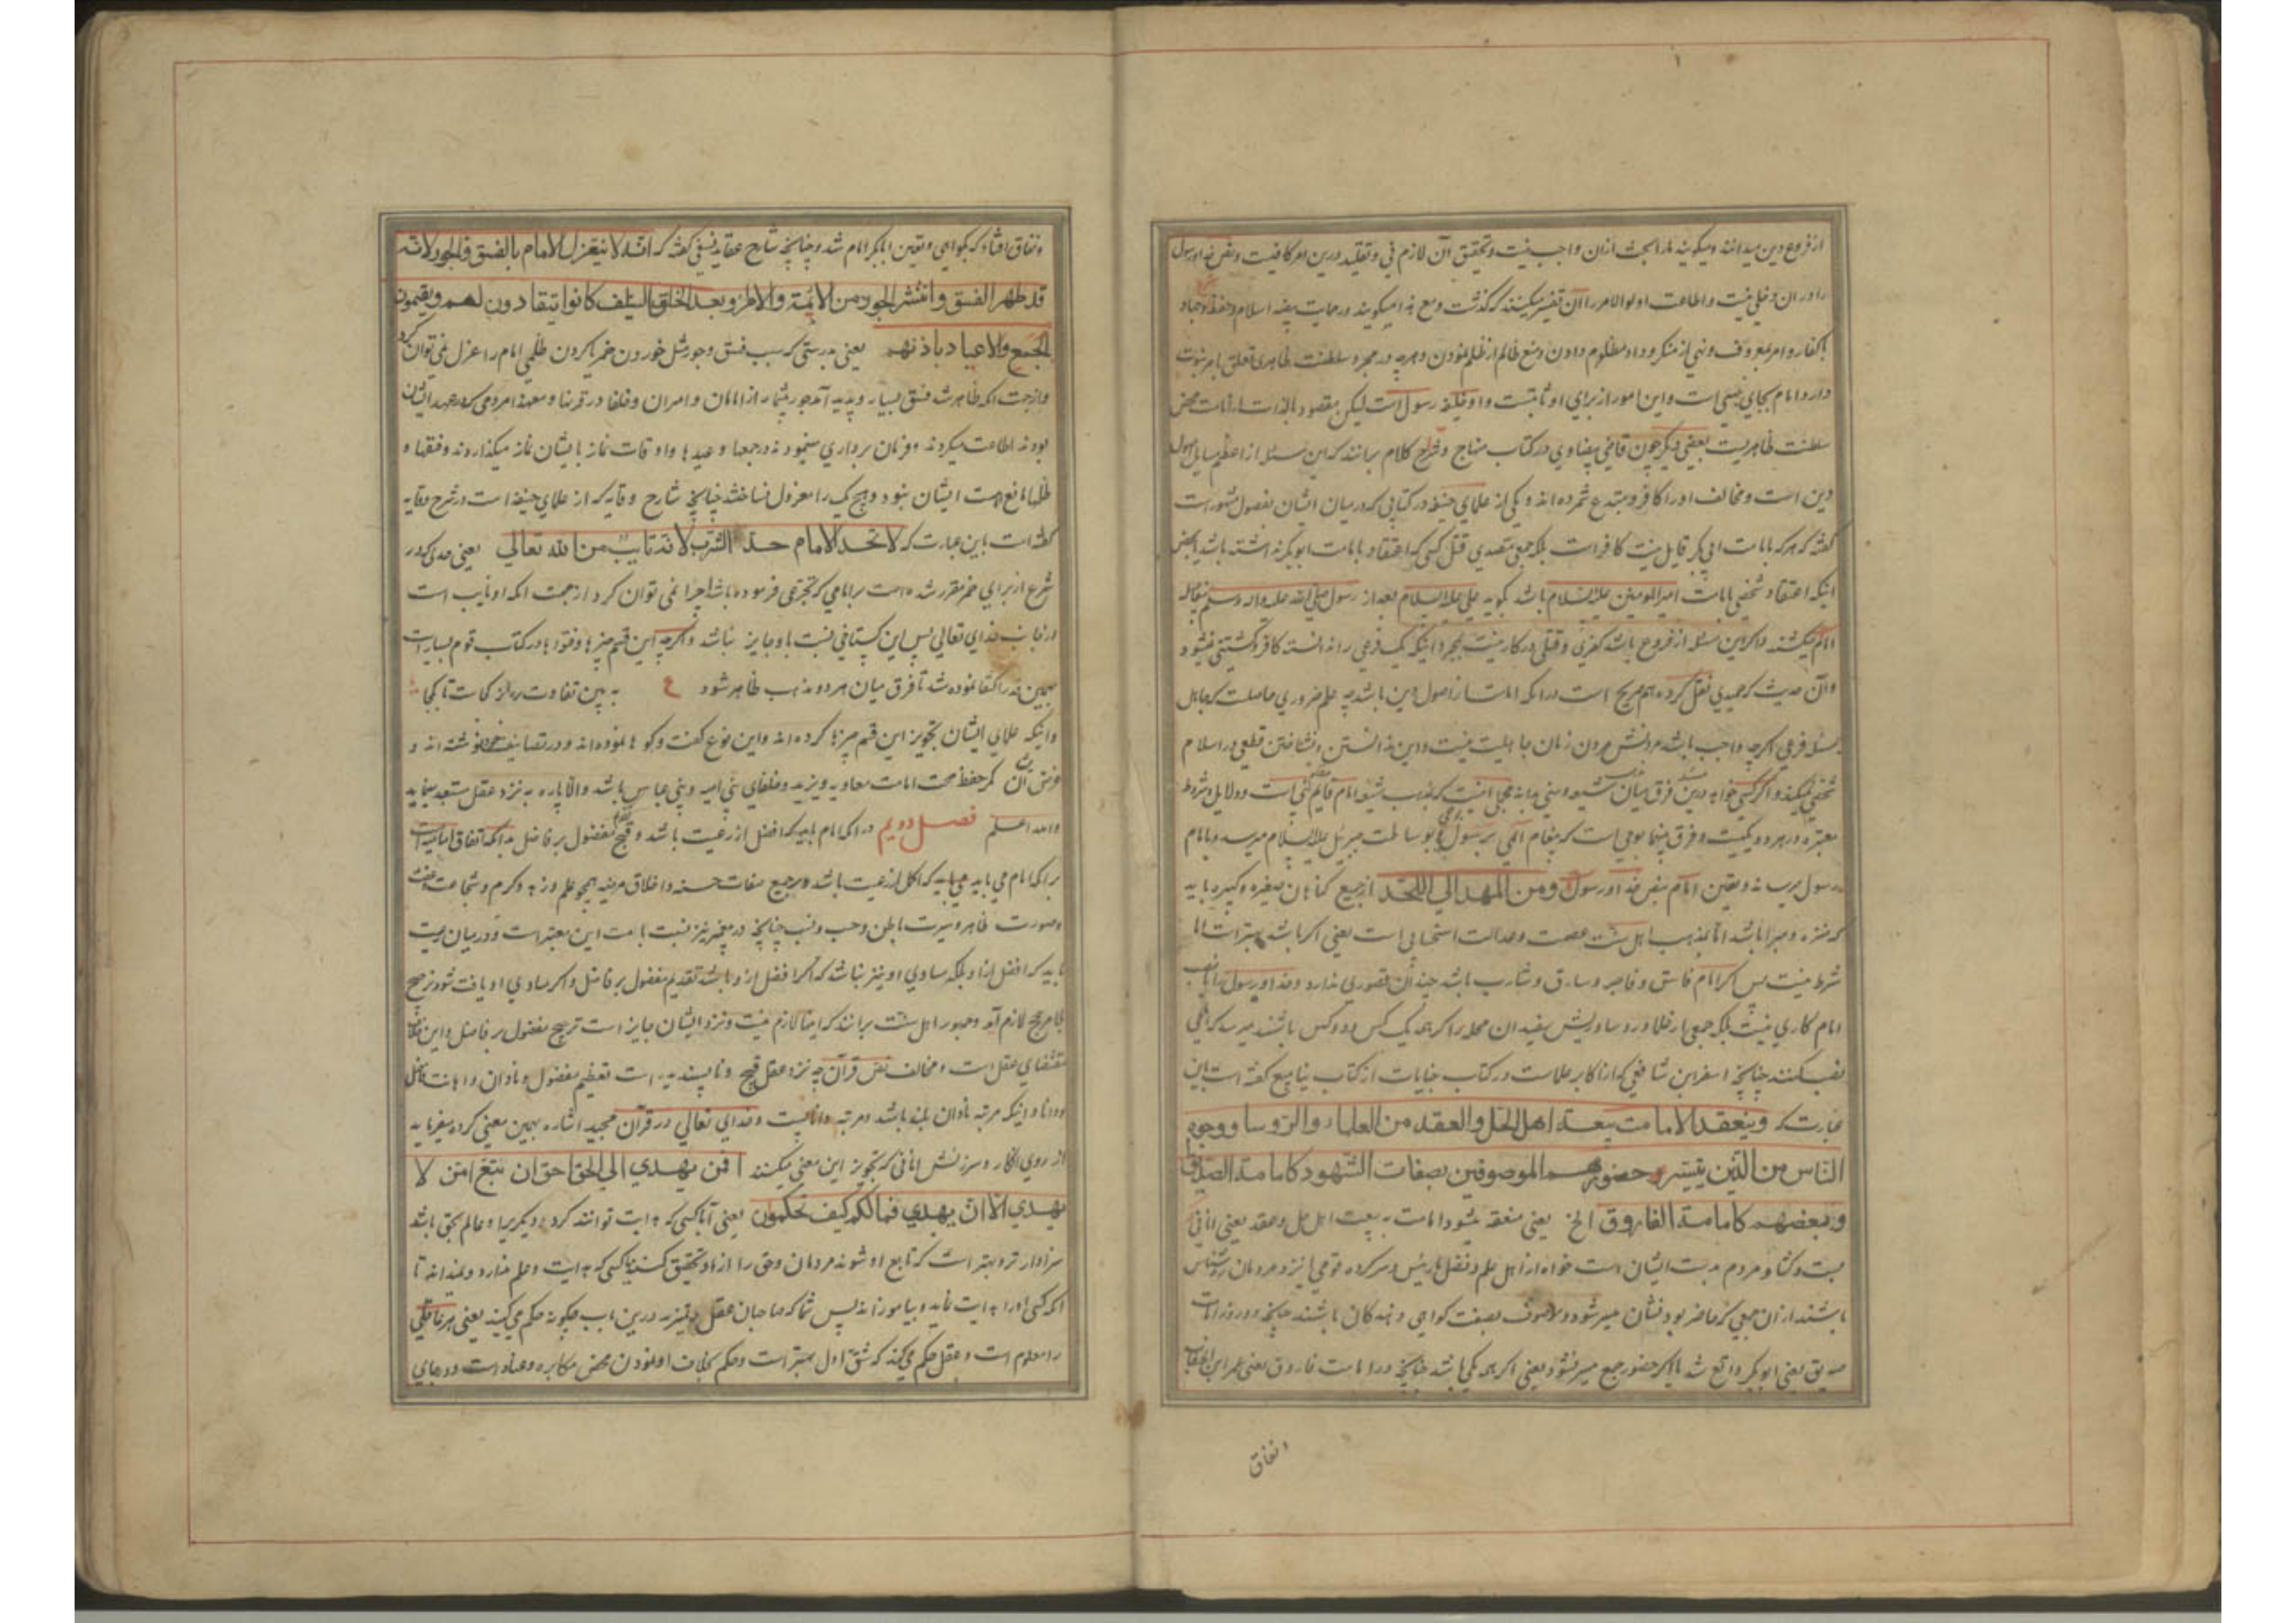 از فروع دین میدانند و میکویند ما را بحث ازان واجب نیست و تحقیق آن لازم نی و تقلید درین امر کافیست و نص خدا و رسول
را در ان دخلی نیست و اطاعت اولوالامر را آن تفسیر میکنند که گذشت و مع هذا میکویند در حمایت بیضه اسلام و حفظ و جهاد
با کفار و امر بمعروف و نهی از منکر و داد مظلوم دادن و منع ظالم از ظلم نمودن و هرچه در سلطنت ظاهری تعلق بامر نبوت
دارد امام بجای نبی است و این امور از برای او ثابتست و او خلیفه رسول است لیکن مقصود بالذات از امامت محض
سلطنت ظاهریست بعضی دیکر چون قاضی بیضاوی در کتاب منهاج و شراح کلام برانند که این مسئله از اعظم مسایل اصول
دین است و مخالف او را کافر و مبتدع شمرده اند و یکی از علمای حنفیه در کتابی که در میان ایشان بفصول مشهور است
کفته که هر که بامامت ابی بکر قایل نیست کافر است بلکه جمعی متصدی قتل کسی که اعتقاد بامامت ابوبکر نداشته باشد بمحض
اینکه اعتقاد شخصی بامامت امیرالمومنین علیه السلام باشد کوید علی علیه السلام بعد از رسول صلی الله علیه واله وسلم
امام میکشند و اکر این مسئله از فروع باشد کفری و قتلی در کار نیست بمجرد اینکه یک فرعی را ندانسته کافر و کشتنی نمیشود
و آن حدیث که حمیدی نقل کرده هم صریح است در انکه امامت از اصول دین باشد چه علم ضروری حاصلست که جاهل
مسئله فرعی اکرچه واجب باشد مردنش مردن زمان جاهلیت نیست و این ندانستن و نشناختن قطعی در اسلام
شخصی نمیکند و اکر کسی خواهد درین مسئله فرق میان مذهب شیعه و سنی بداند مجملا اینست که بمذهب شیعه امام قایم مقام نبی است و دلایل و شروط
معتبره در هر دو یکیست و فرق بینهما بوحی است که پیغام الهی بر رسول بوساطت جبرئیل علیه السلام میرسد و بامام
رسول میرساند و تعیین امام بنص خدا و رسول و من المهد الی اللحد از جمیع کناهان صغیره و کبیره باید
که منزه و مبرا باشد اما بمذهب اهل سنت عصمت و عدالت استحبابی است یعنی اکر باشد بهتر است اما
شرط نیست پس اکر امام فاسق و فاجر و سارق و شارب باشد چندان قصوری ندارد و خدا و رسول را با نصب
امام کاری نیست بلکه جمعی از علما و رؤسا و ریش سفیدان محله را اکر همه یک کس و دو کس باشند میرسد که امامی
نصب کنند چنانچه اسفراین شافعی که از اکابر علماست در کتاب جنایات از کتاب ینابیع کفته است باین
عبارت که وینعقد الامامت بیعة اهل الحل والعقد من العلماء والرؤسا ووجوه
الناس من الذین یتیسر حضورهم الموصوفین بصفات الشهود کامامة الصدیق
وبعضهم کامامة الفاروق الخ یعنی منعقد میشود امامت به بیعت اهل حل و عقد یعنی انانی
بست و کشاد مردم بدست ایشان است خواه از اهل علم و فضل یا رئیس و سرکرده قومی یا نزد مردمان روشناس
باشند از ان جمعی که حاضر بودنشان میسر شود و موصوف بصفت کواهی دهندکان باشند چنانچه در روز امامت
صدیق یعنی ابوبکر واقع شد یا اکر حضور جمع میسر نشود یعنی اکر همه یکی باشد چنانچه در امامت فاروق یعنی عمر ابن الخطاب
و نفاق
و نفاق افتاد که بکواهی و تعیین ابابکر امام شد و چنانچه شارح عقاید نسفی کفته که انه لا ینعزل الامام بالفسق والجور لانه
قد ظهر الفسق وانتشر الجور من الائمة والامراء بعد الخلق السلف کانوا ینقادون لهم ویقیمون
الجمع والاعیاد باذنهم یعنی بدرستی که بسبب فسق و جور مثل خوردن خمر یا کردن ظلمی امام را عزل نمی توان کرد
و از جهت انکه ظاهر شد فسق بسیار و پدید آمد جور بیشمار از امامان و امیران و خلفا در قرنها و معهذا مردمی که در عهد ایشان
بودند اطاعت میکردند و فرمان برداری مینمودند و در جمعها و عیدها و اوقات نماز با ایشان نماز میکذاردند و فقها و
علما مانع امامت ایشان نبود و هیچ یک را معزول نساختند چنانچه شارح وقایه که از علمای حنفیه است در شرح وقایه
کفته است باین عبارت که لا تحد الامام حد الشرب لانه نایب من الله تعالی یعنی حدی که در
شرع از برای خمر مقرر شده است بر امامی که تجرعی فرموده باشد اجرا نمی توان کرد از جهت انکه او نایب است
از جانب خدای تعالی پس این کستاخی نسبت باو جایز نباشد و اکرچه این قسم چیزها و فتوها در کتاب قوم بسیار است
بهمین قدر اکتفا نموده شد تا فرق میان هر دو مذهب ظاهر شود ع به بین تفاوت ره از کجاست تا بکجا
و اینکه علمای ایشان تجویز این قسم چیزها کرده اند و این نوع کفت و کوها نموده اند و در تصانیف خود نوشته اند و
غرض آن کر حفظ صحت امامت معاویه و یزید و خلفای بنی امیه و بنی عباس باشد و الا پاره به نزد عقل مستبعد مینماید
والله اعلم فصل دویم در انکه امام باید که افضل از رعیت باشد و قبح تقدیم مفضول بر فاضل بدانکه اتفاق امامیه است
بر انکه امام می باید که اکمل از رعیت باشد در جمیع صفات حسنه و اخلاق مرضیه همچو علم و زهد و کرم و شجاعت و عفت
و صورت ظاهر و سیرت باطن و حسب و نسب چنانچه در پیغمبر نیز نسبت بامت این معتبر است و در میان رعیت
نباید که افضل از او بلکه مساوی او نیز نباشد که اکر افضل از و باشد تقدیم مفضول بر فاضل و اکر مساوی او یافت شود ترجیح
بلا مرجح لازم آید و جمهور اهل سنت برانند که اینها لازم نیست و نزد ایشان جایز است ترجیح مفضول بر فاضل و این خلاف
مقتضای عقل است و مخالف نص قرآن چه نزد عقل قبیح و ناپسندیده است تعظیم مفضول و نادان و اهانت فاضل
و دانا و اینکه مرتبه نادان بلند باشد و مرتبه دانا پست و خدای تعالی در قرآن مجید اشاره بهمین معنی کرده میفرماید
از روی انکار و سرزنش انانی که تجویز این معنی میکنند افمن یهدی الی الحق احق ان یتبع امن لا
یهدی الا ان یهدی فما لکم کیف تحکمون یعنی آیا کسی که هدایت توانند کرد دیکریرا و عالم بحق باشد
سزاوارتر و بهتر است که تابع او شوند مردمان و حق را از او تحقیق کنند یا کسی که هدایت و علم ندارد و نمیداند تا
انکه کسی او را هدایت نماید و بیاموزاند پس شما که صاحبان عقل و تمیزید درین باب چکونه حکم می کنید یعنی بر هر عاقلی
را معلوم است و عقل حکم می کند که شق اول بهتر است و حکم بخلاف او نمودن محض مکابره و عناد است و در جای